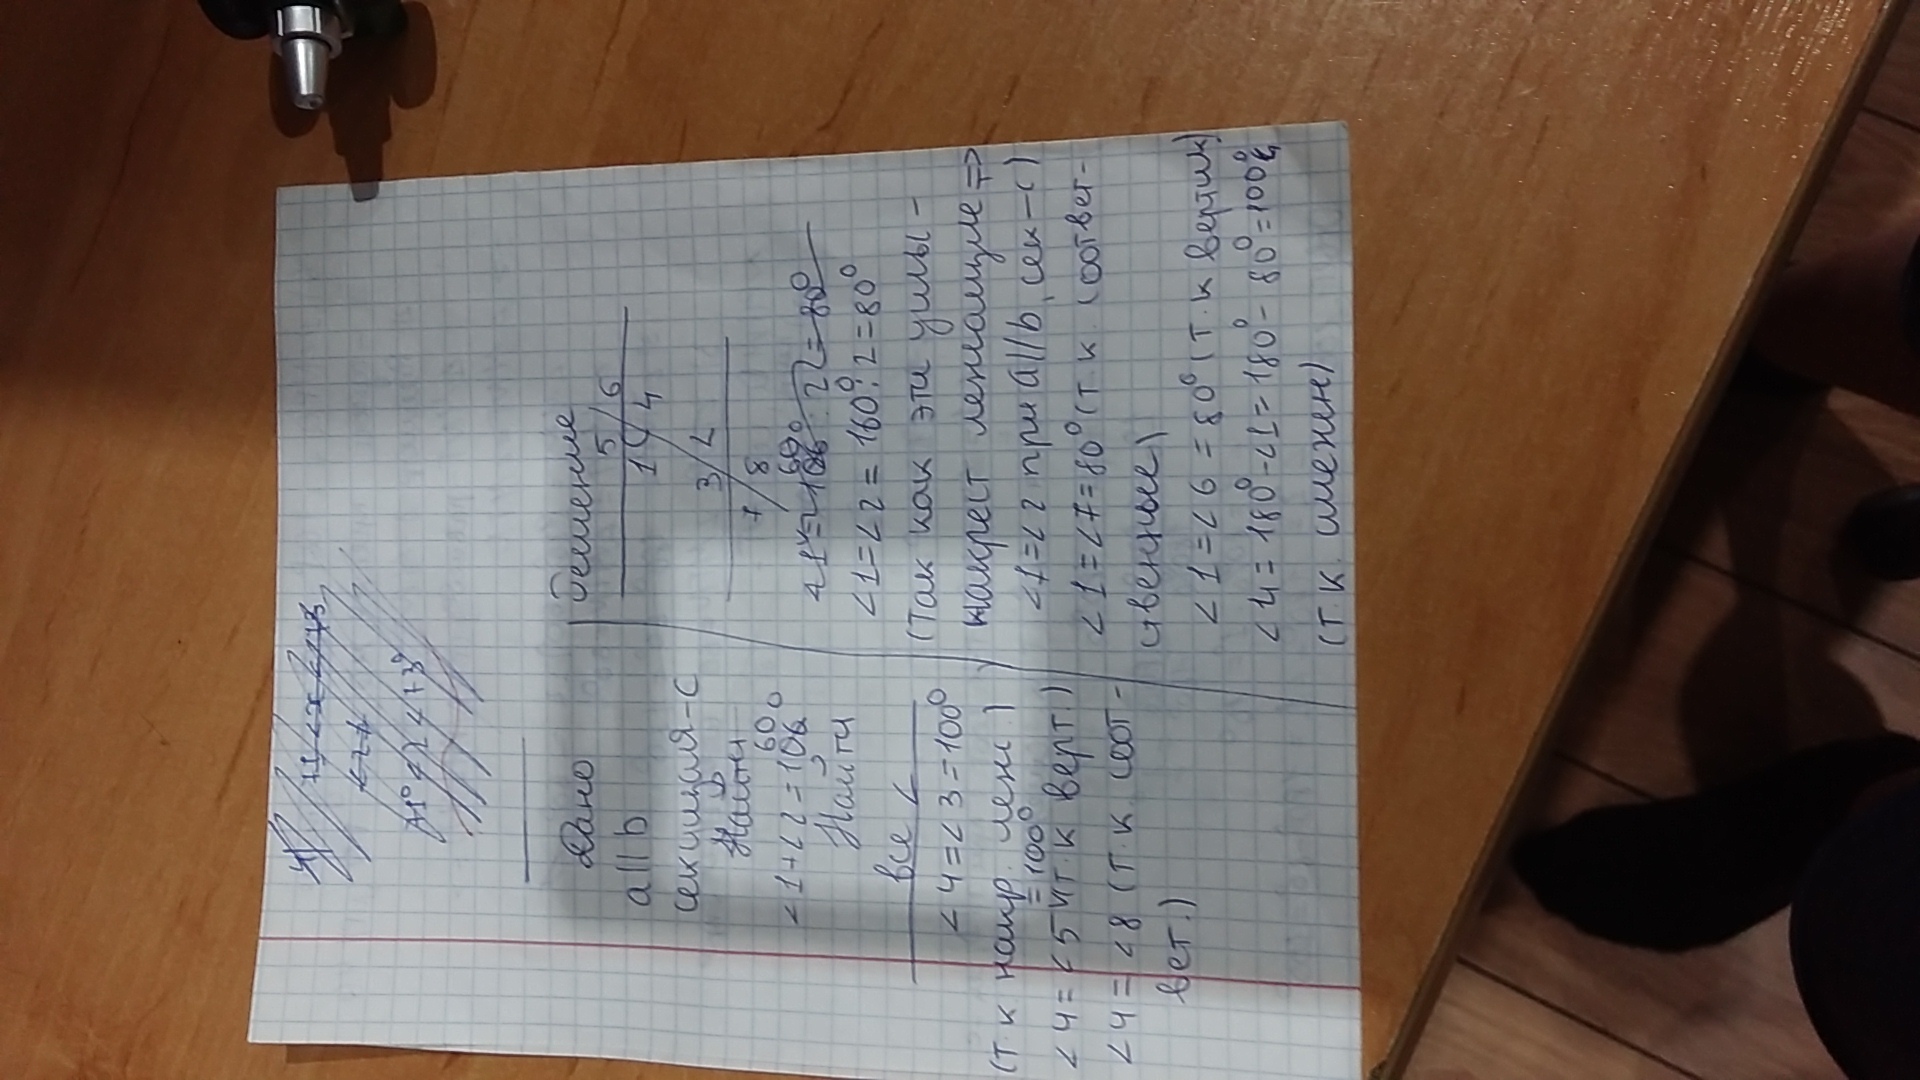 Дано
a || b
секищия-с
Найти
<1+<2=160°
Найти
все <
<4=<3=100°
(т.к накр. леж.)
<4=<5=100° (т.к верт.)
<4=<8 (т.к. соот-
вет.)
Решение
5 6
1 4
3 2
7 8
<1=<2=160°:2=80°
(Так как эти углы -
накрест лежащие =>
<1=<2 при a||b, сек-с)
<1=<7=80° (т.к. соответ-
ственные)
<1=<6=80° (т.к вертик)
<4=180°-<1=180°-80°=100°
(т.к. смежн)